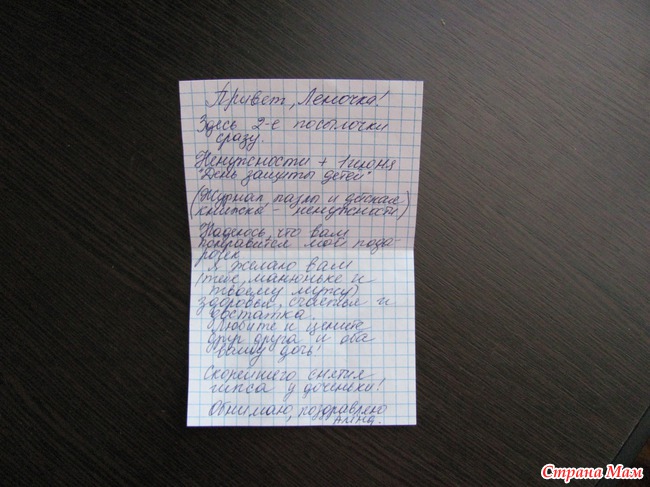 Привет, Леночка!
Здесь 2-е посылочки
сразу.
Ненужности + 1 июня
"День защиты детей"
(Журнал, пазлы и детская
книжка - ненужности)
Надеюсь, что вам
понравится мой пода-
рочек
Я желаю вам
(тебе, манюньке и
твоему мужу)
здоровья, счастья и
достатка.
Любите и цените
друг друга и оба
вашу дочь!
Скорейшего снятия
гипса у доченьки!
Обнимаю, поздравляю
Алина.
Страна Мам